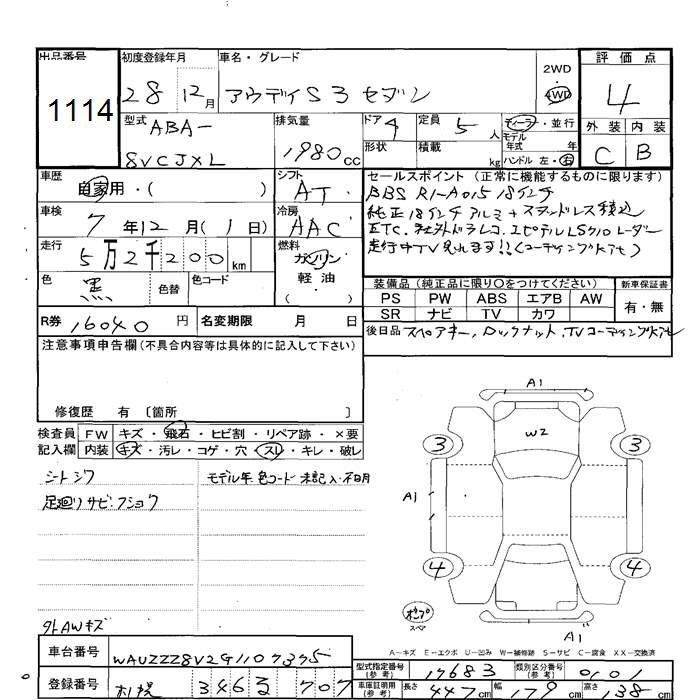 出品番号 初度登録年月 車名・グレード 2WD 4WD 評価点
1114 28 12月 アウディS3セダン 4
型式 ABA- 8VCJXL 排気量 1980cc ドア 4 定員 5人 ディーラー・並行
形状 積載 kg モデル年式 年 ハンドル 左・右 外装 C 内装 B
車歴 自家用・( ) シフト AT セールスポイント(正常に機能するものに限ります)
BBS RI-A015 18インチ
車検 7年12月(1日) 冷房 AAC 純正18インチアルミ+スタッドレス積込
ETC、社外ドラレコ、ユピテルLS710レーダー
走行 5万2千200km 燃料 ガソリン 軽油 走行中TV見れます!!(コーディング施工)
色 黒 色替 色コード
装備品(純正品に限り○をつけてください) 新車保証書
PS PW ABS エアB AW 有・無
SR ナビ TV カワ
R券 16040円 名変期限 月 日
後日品 スペアキー、ロックナット、TVコーディング
注意事項申告欄(不具合内容等は具体的に記入して下さい)
修復歴 有〔箇所 〕
検査員 記入欄 FW キズ・飛石・ヒビ割・リペア跡・×要
内装 キズ・汚レ・コゲ・穴・スレ・キレ・破レ
シートシワ モデル年 色コード 未記入・不明
足廻りサビ・フショク
外AWキズ
A1
W2
3 3
A1
4 4
スペア
A1
A-キズ E-エクボ U-凹み W-補修跡 S-サビ C-腐食 XX-交換済
車台番号 WAUZZZ8V2G1107375
型式指定番号(参考) 17683 類別区分番号(参考) 0101
登録番号 札幌 346 る 707
車庫証明用(参考) 長さ 447cm 幅 179cm 高さ 138cm